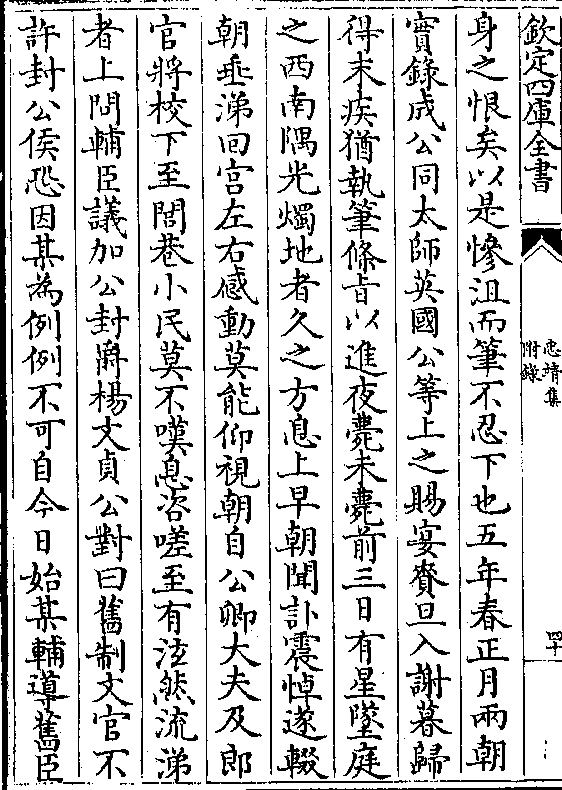 欽定四庫全書
忠靖集
附錄
四十
身之恨矣以是慘沮而筆不忍下也五年春正月兩朝
實錄成公同太師英國公等上之賜宴賚旦入謝暮歸
得末疾猶執筆條旨以進夜薨未薨前三日有星墜庭
之西南隅光燭地者久之方息上早朝聞訃震悼遂輟
朝垂涕回宫左右感動莫能仰視朝自公卿大夫及郎
官將校下至閭巷小民莫不嘆息咨嗟至有泫然流涕
者上問輔臣議加公封爵楊文貞公對曰舊制文官不
許封公侯恐因某為例例不可自今日始某輔導舊臣